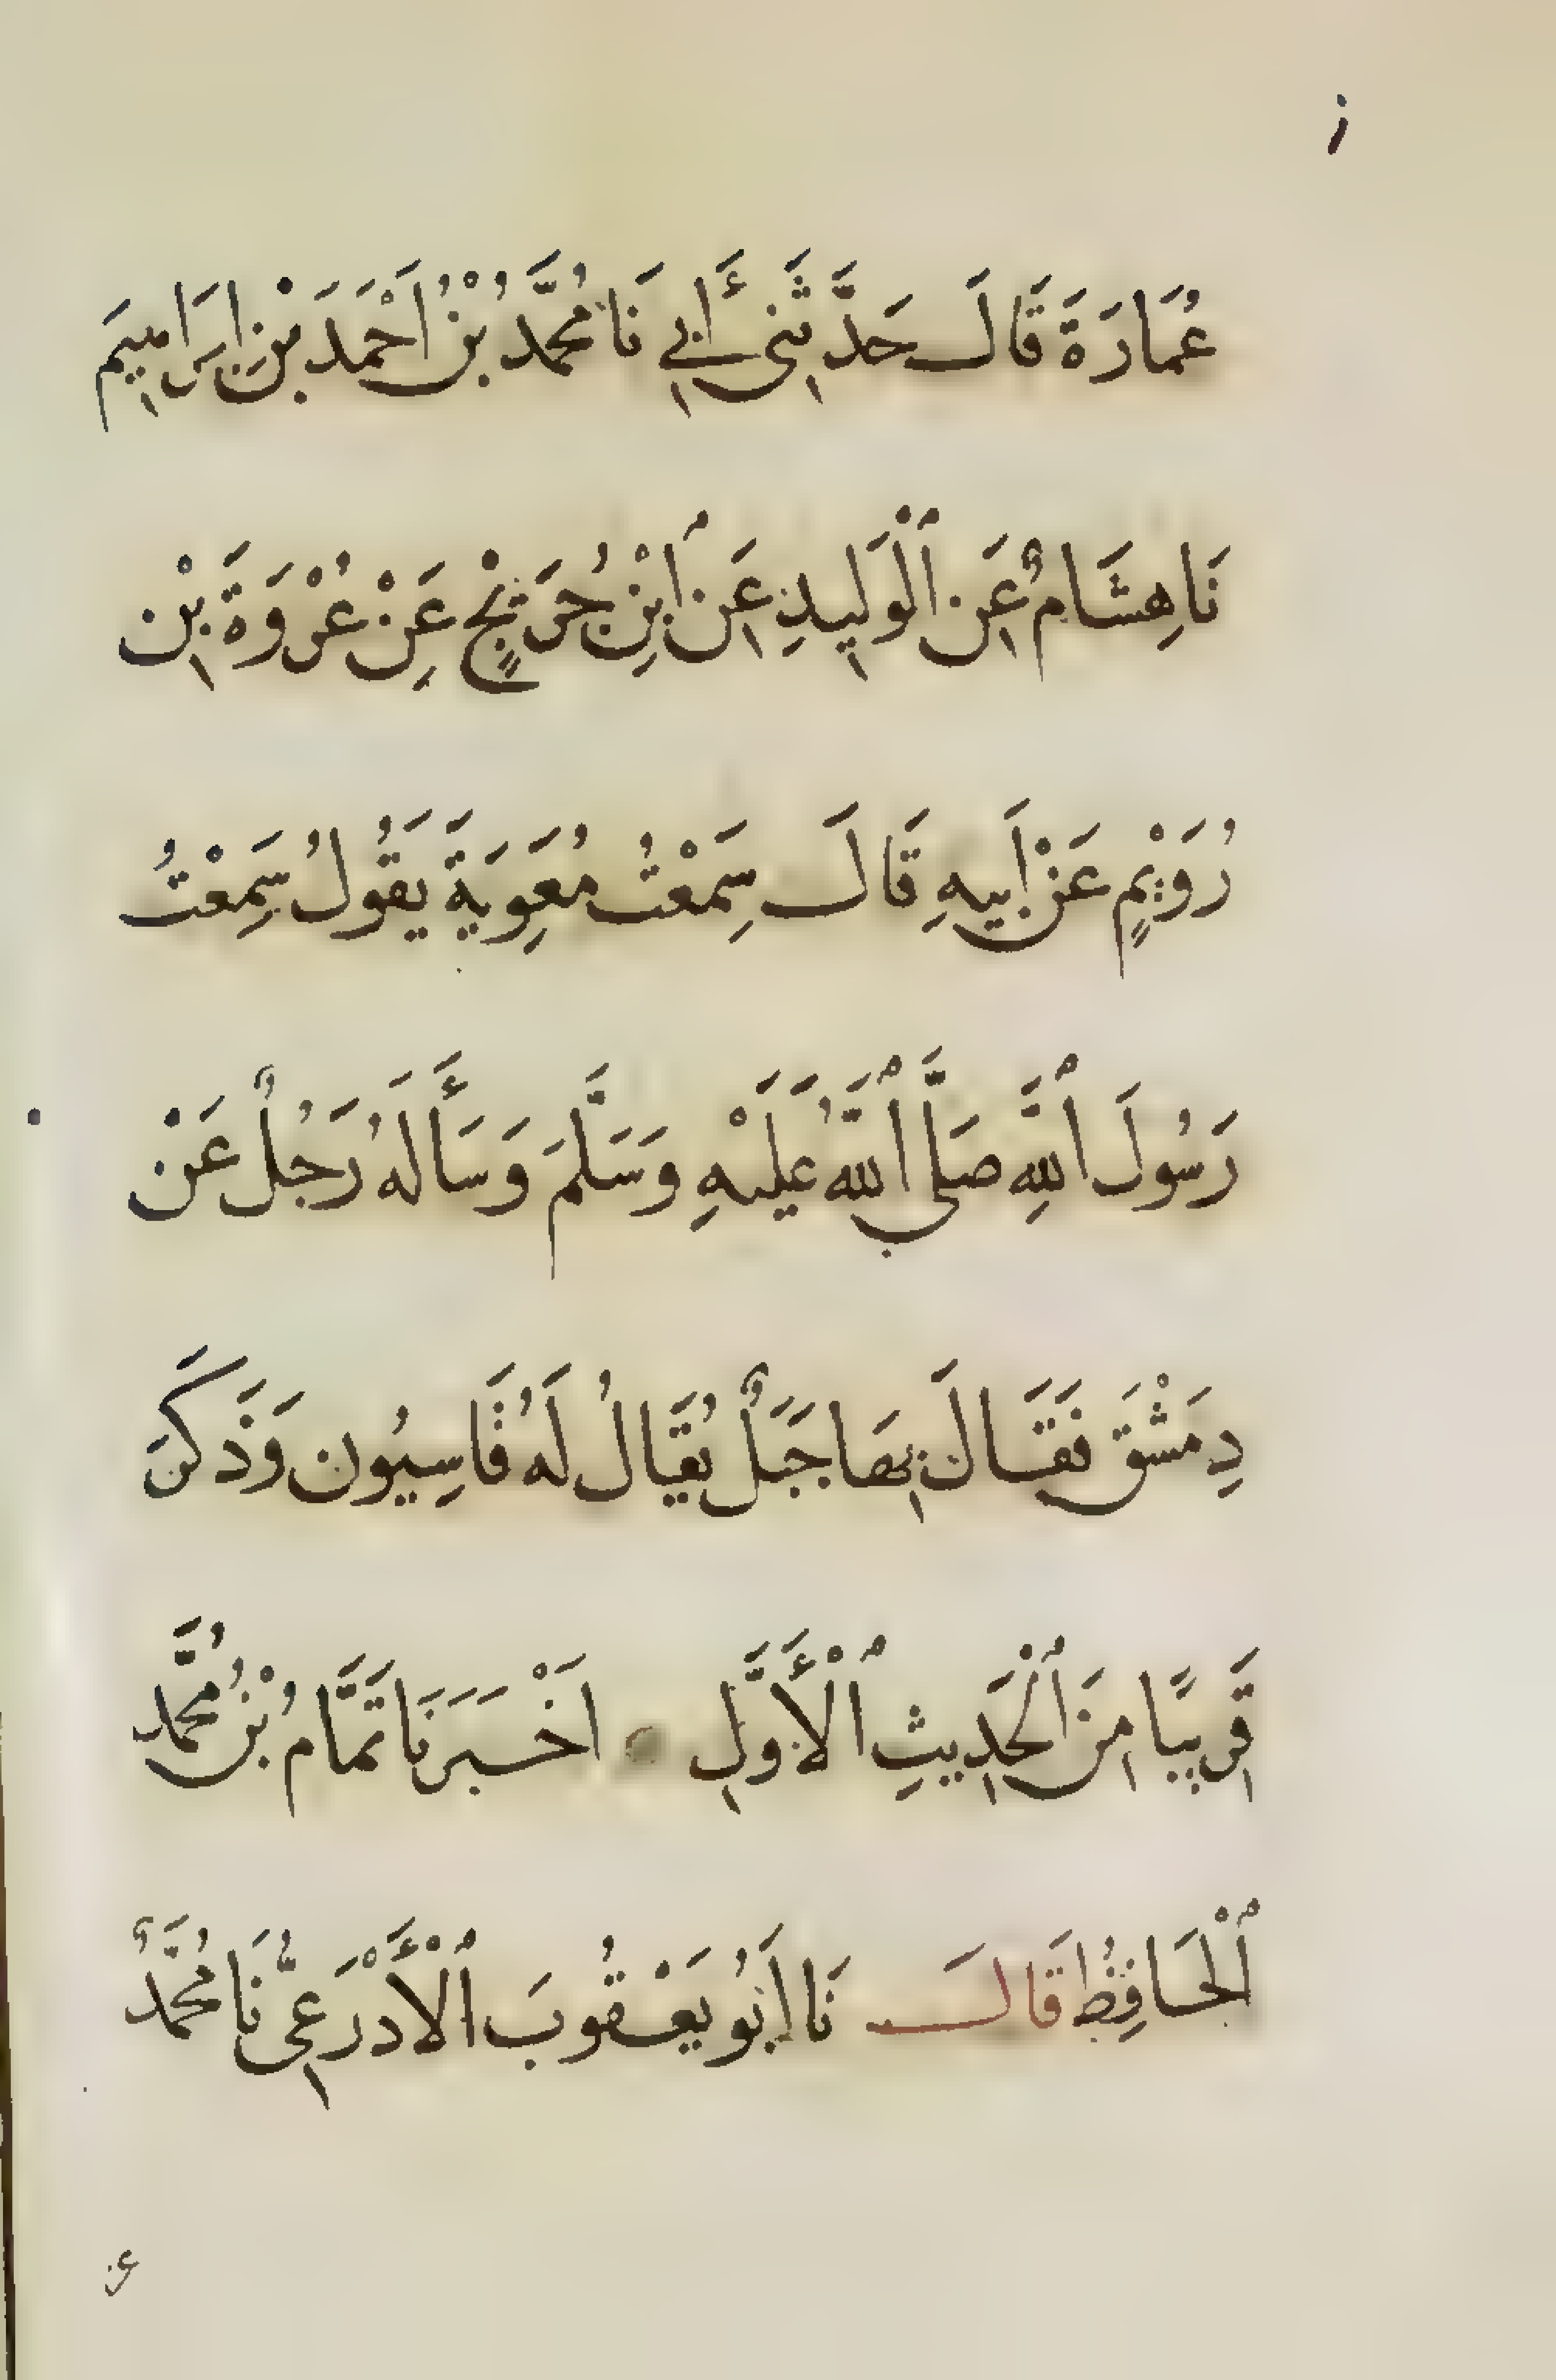 ز
عُمَارَةَ قَالَ حَدَّثَنِي أَبِي نَا مُحَمَّدُ بْنُ اَحْمَدَ بْنِ اِبَراهِيمَ
نَا هِشَامٌ عَنِ ٱلْوَلِيدِ عَنِ ٱبْنِ جُرَيْجٍ عَنْ عُرْوَةَ بْنِ
رُوَيْمٍ عَنْ اَبِيهِ قَالَ سَمِعْتُ مُعَوِيَةَ يَقُولُ سَمِعْتُ
رَسُولَ ٱللَّهِ صَلَّى ٱللَّهُ عَلَيْهِ وَسَلَّمَ وَسَأَلَهُ رَجُلٌ عَنْ
دِمَشْقَ فَقَالَ بِهَا جَبَلٌ يُقَالُ لَهُ قَاسِيُون وَذَكَرَ
قَرِيبًا مِنَ ٱلْحَدِيثِ ٱلْأَوَّلِ اَخْبَرَنَا تَمَّامُ بْنُ مُحَمَّد
ٱلْحَافِظُ قَالَ نَا اَبُو يَعْقُوبَ ٱلْأَدْرَعِيُّ نَا مُحَمَّدٌ